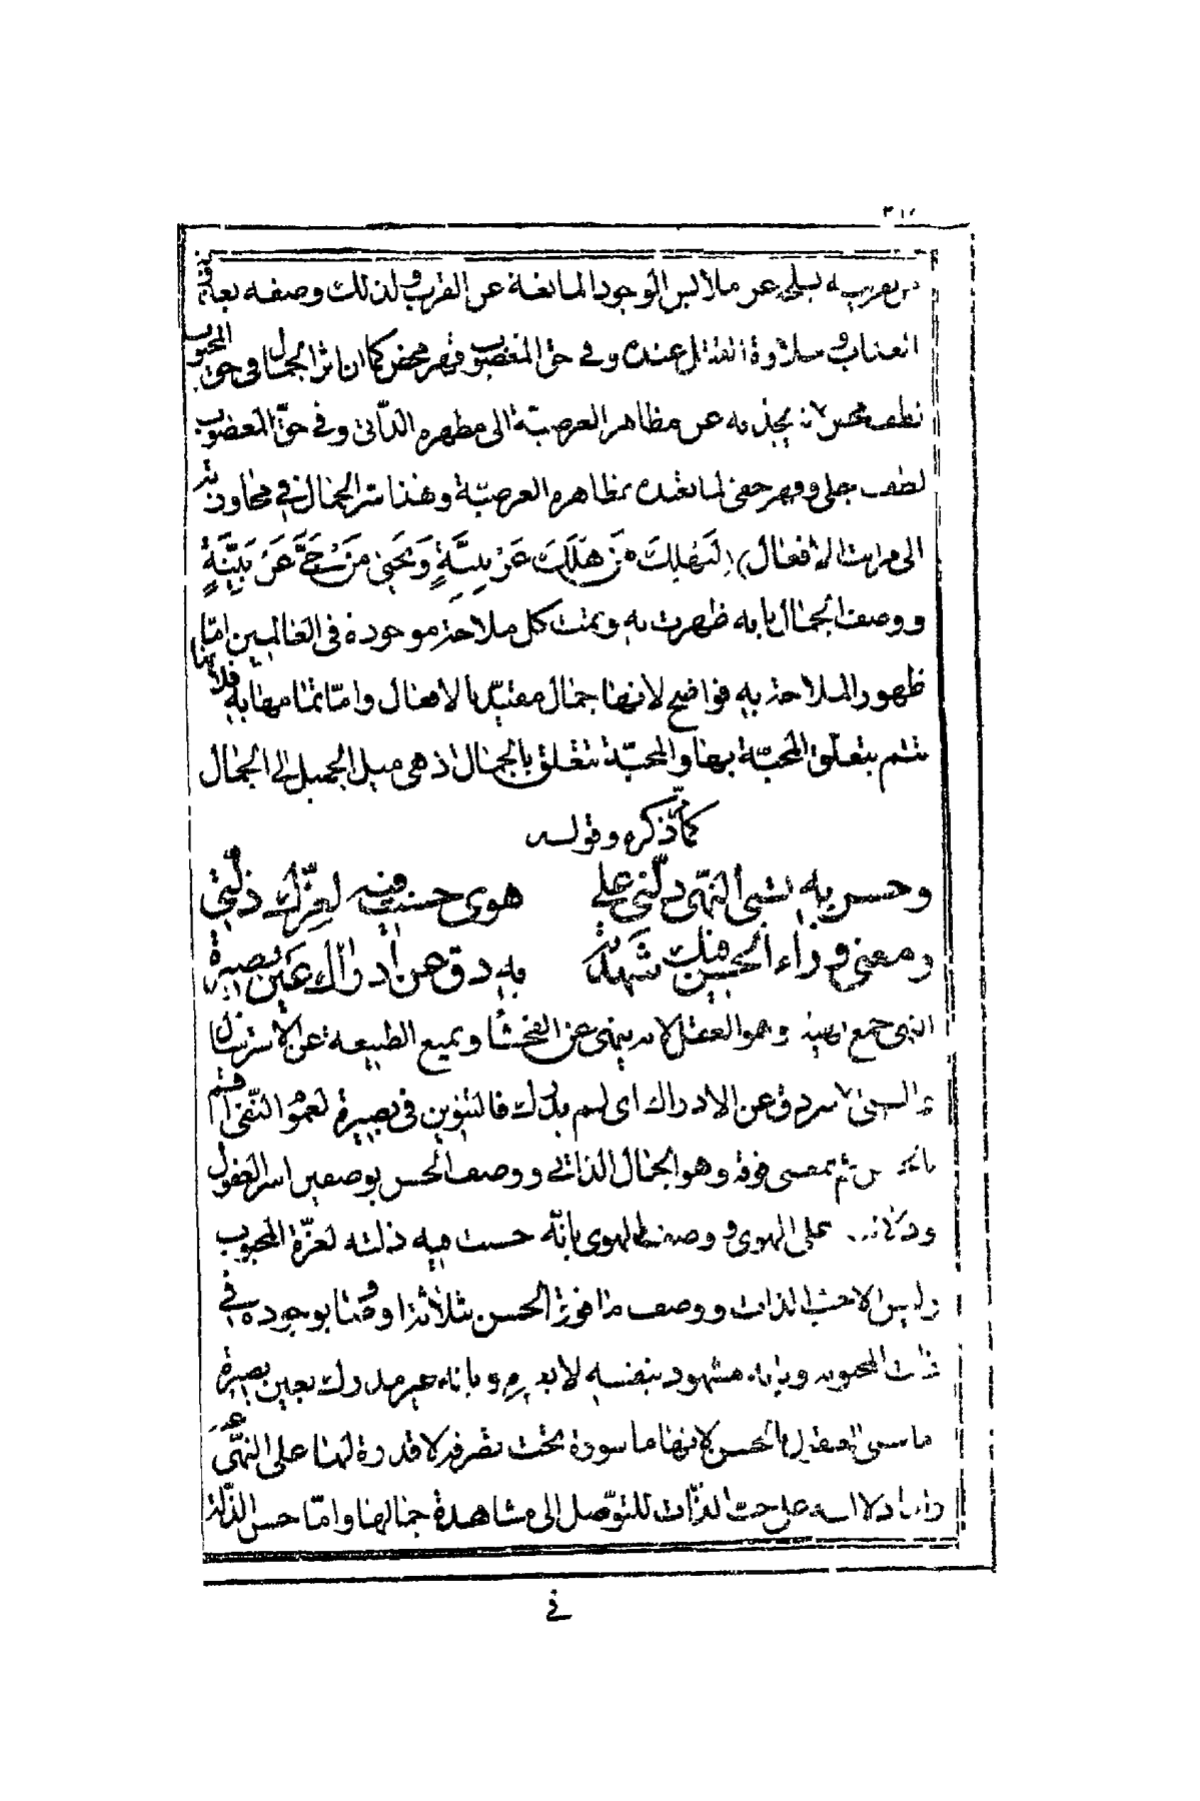 به يسلخه عن ملابس الوجود المانعة عن القرب ولذلك وصفه بعذوبة
العذاب وحلاوة القتل عنده وفي حق المغضوب قهر محض كما ان اثر الجمال في حق المحبوب
لطف محض لانه يجذبه عن مظاهر العرضيّة الى مظهره الذّاتي وفي حقّ المغضوب
لطف جلي وقهر خفي لما تقيده بمظاهره العرضيّة وهذا سر الجمال في
الى مراتب الافعال ليَهلِكَ مَن هَلَكَ عَنْ بيِنَّةٍ وَيَحيَى مَنْ حَيَّ عَنْ بَيِّنَةٍ
ووصف الجمال بانه ظهرت به وتمت كل ملاحة موجودة في العالمين امّا
ظهور الملاحة به فواضح لانها جمال مقيّد بالافعال وامّا تمامها به فلانها
تتم بتعلّق المحبّة بها والمحبّة تتعلق بالجمال اذ هي ميل الجميل الى الجمال
كما ذكره وقوله
وحسن به تسبى النهّى دلّني على هوى حسنت فيه لعزّك ذلّتي
ومعنى وراء الحسن فيك شهدته به دق عن ادراك عَين بصيرة
النهى جمع نهية وهو العقل لانه ينهى عن الفحشا ويمنع الطبيعة عن الاسترسال
دق عن الادراك اى لم يدرك فالتنوين في بصيرة لعموم النّفى اقسم
ثم بمعنى فوقه وهو الجمال الذاتي ووصف الحسن بوصفين اسر العقول
على الهوى ووصف الهوى بانّه حسنت فيه ذلته لعزّة المحبوب
وليس الا حب الذات ووصف ما فوق الحسن بثلاثة اوصاف بوجوده في
ذات المحبوب وبانه مشهود بنفسه لا بغيره وبانه غير مدرك بعين بصيرة
العقول الحسن لانها ماسورة تحت تصرفه لا قدرة لها على النهّى
على حب الذّات للتوصّل الى مشاهدة جمالها وامّا حسن الذّلة
في